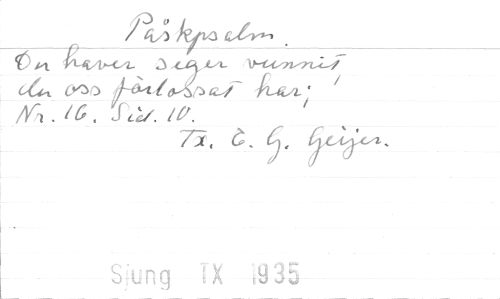 Påskpsalm.
Du haver seger vunnit,
du oss förlossat har;
Nr. 16. Sid. 10.
Tx. E. G. Geijer.
Sjung TX 1935